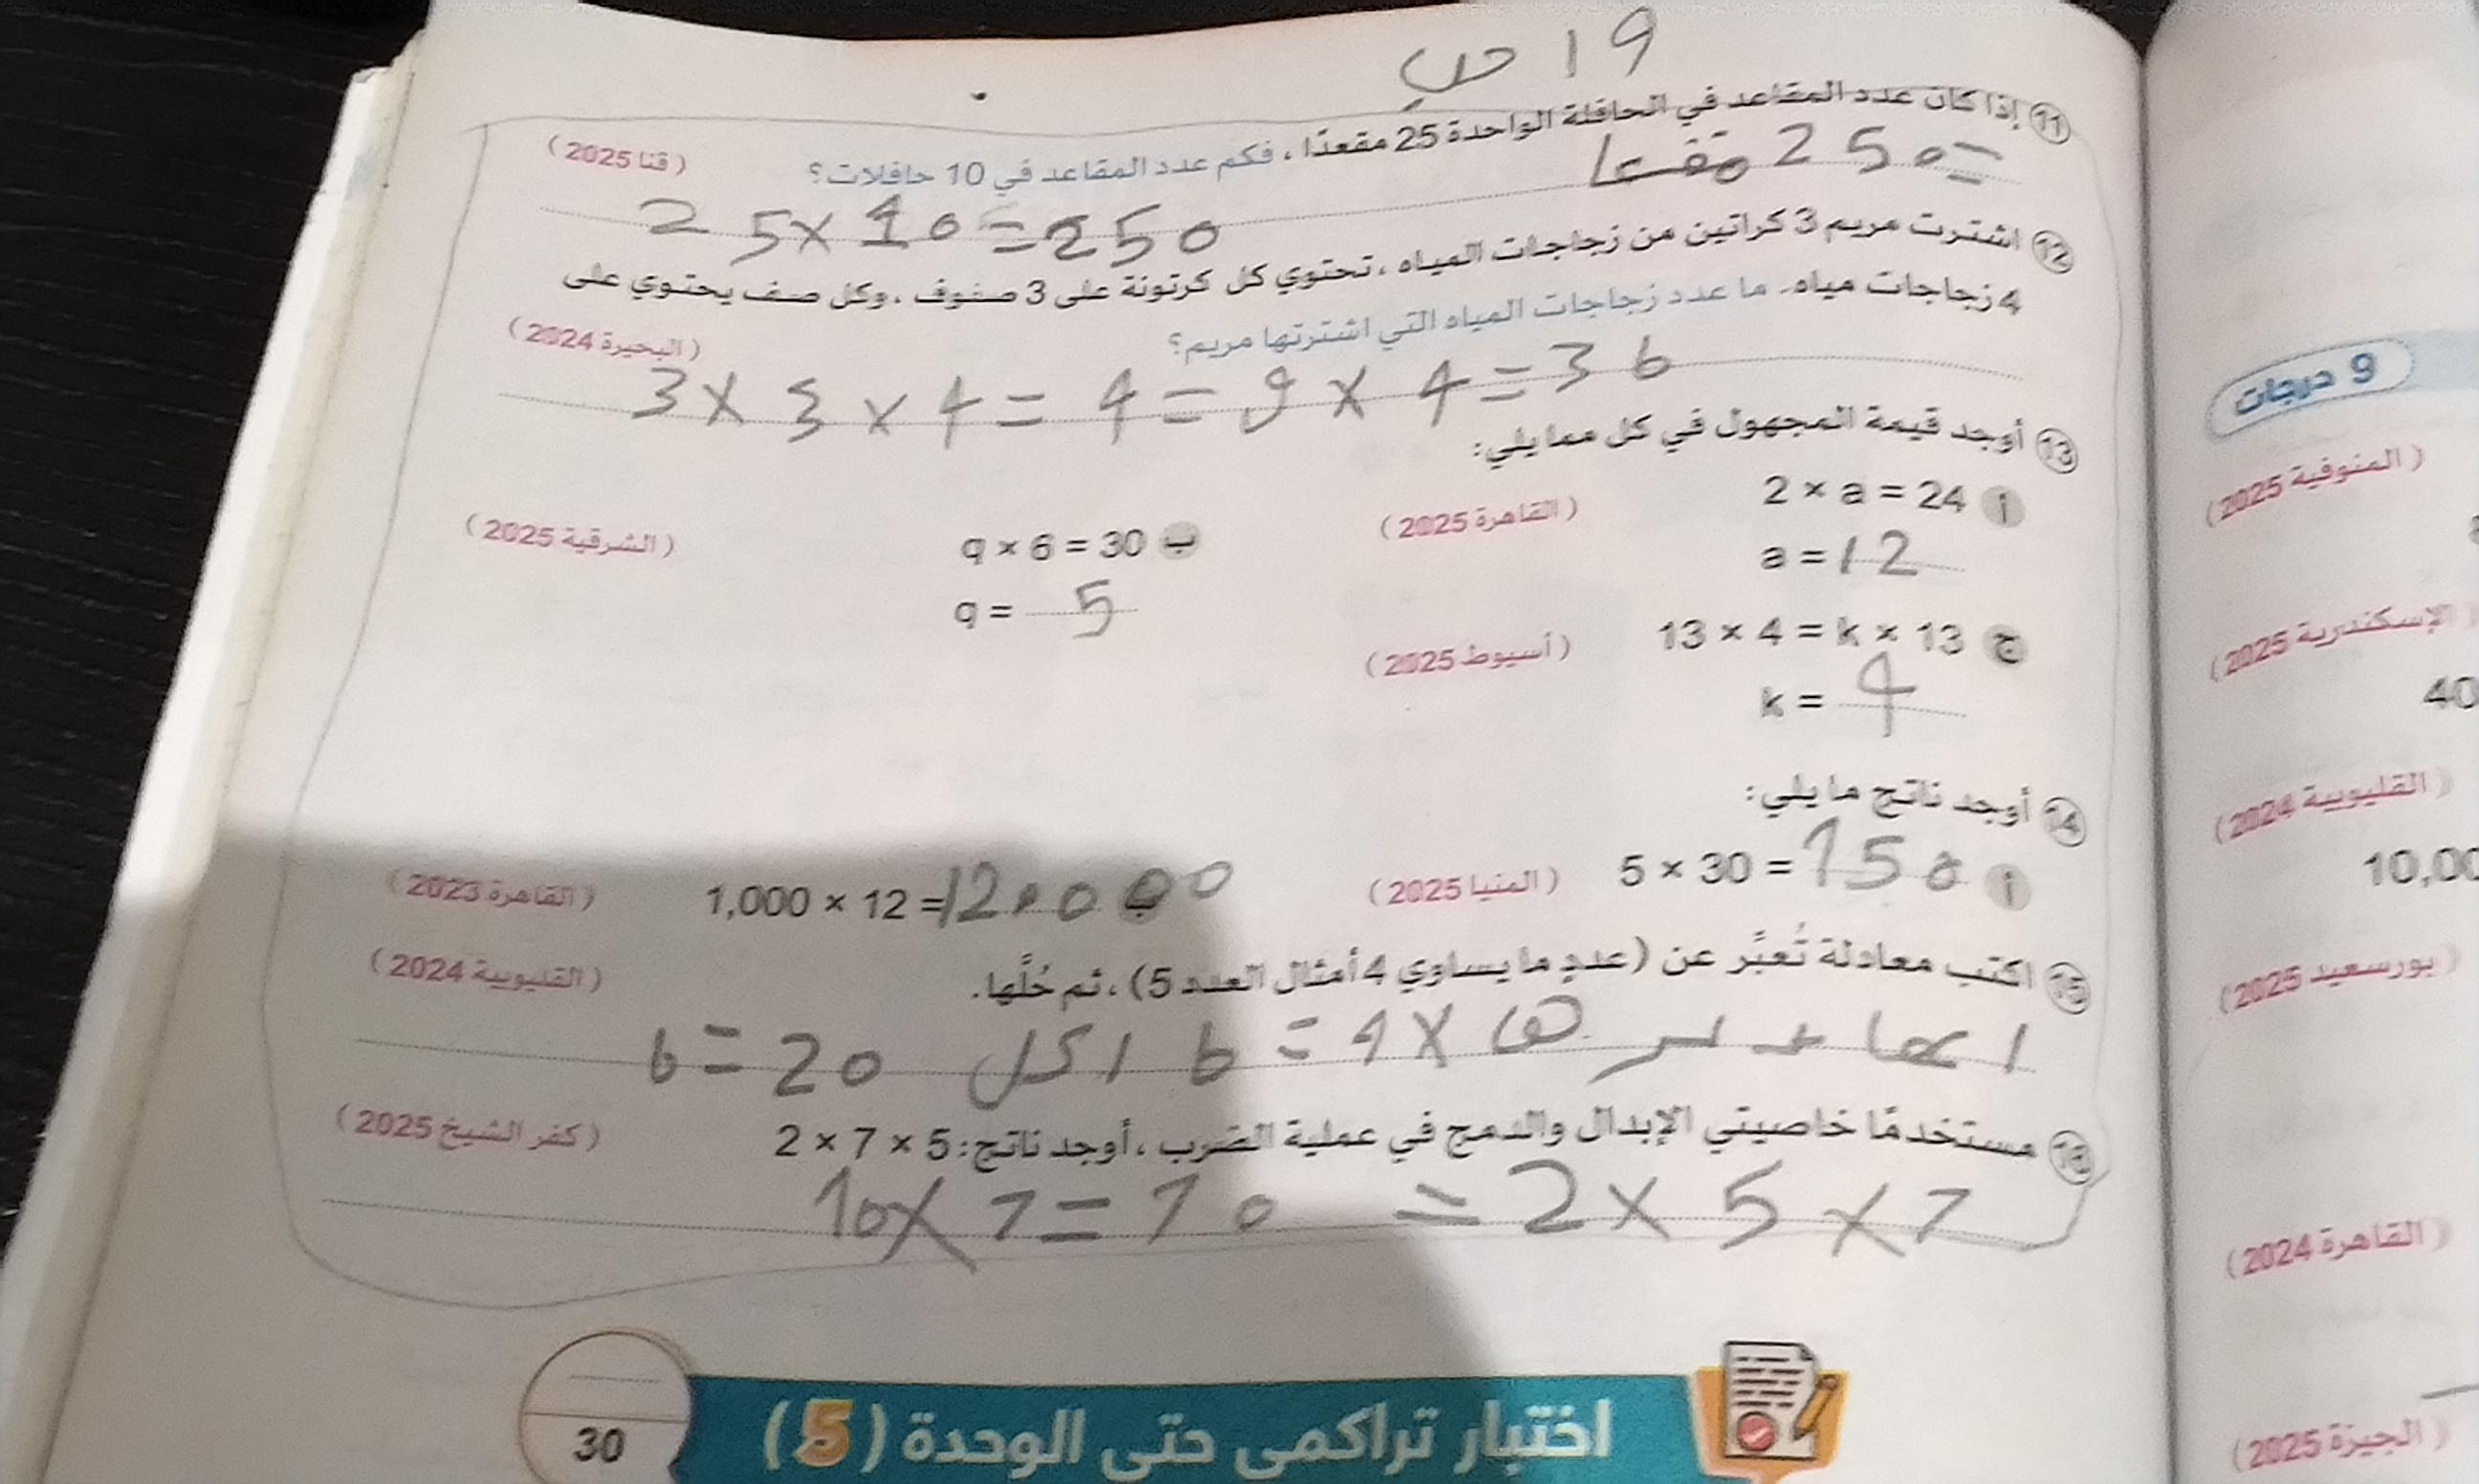 19 ص
11 إذا كان عدد المقاعد في الحافلة الواحدة 25 مقعدًا، فكم عدد المقاعد في 10 حافلات؟ (قنا 2025)
= 250
25 × 10 = 250
12 اشترت مريم 3 كراتين من زجاجات المياه، تحتوي كل كرتونة على 3 صفوف، وكل صف يحتوي على
4 زجاجات مياه. ما عدد زجاجات المياه التي اشترتها مريم؟ (البحيرة 2024)
3 × 3 × 4 = 4 = 9 × 4 = 36
13 أوجد قيمة المجهول في كل مما يلي:
أ 2 × a = 24 (القاهرة 2025)
a = 12
ب q × 6 = 30 (الشرقية 2025)
q = 5
ج 13 × 4 = k × 13 (أسيوط 2025)
k = 4
14 أوجد ناتج ما يلي:
أ 5 × 30 = 150 (المنيا 2025)
ب 1,000 × 12 = 120000 (القاهرة 2023)
15 اكتب معادلة تُعبِّر عن (عددٍ ما يساوي 4 أمثال العدد 5)، ثم حُلَّها. (القليوبية 2024)
b = 4 ×
b = 20
16 مستخدمًا خاصيتي الإبدال والدمج في عملية الضرب، أوجد ناتج: 2 × 7 × 5 (كفر الشيخ 2025)
= 2 × 5 × 7
10 × 7 = 70
اختبار تراكمى حتى الوحدة (5)
30
9 درجات
(المنوفية 2025)
(الإسكندرية 2025)
40
(القليوبية 2024)
10,00
(بورسعيد 2025)
(القاهرة 2024)
(الجيزة 2025)